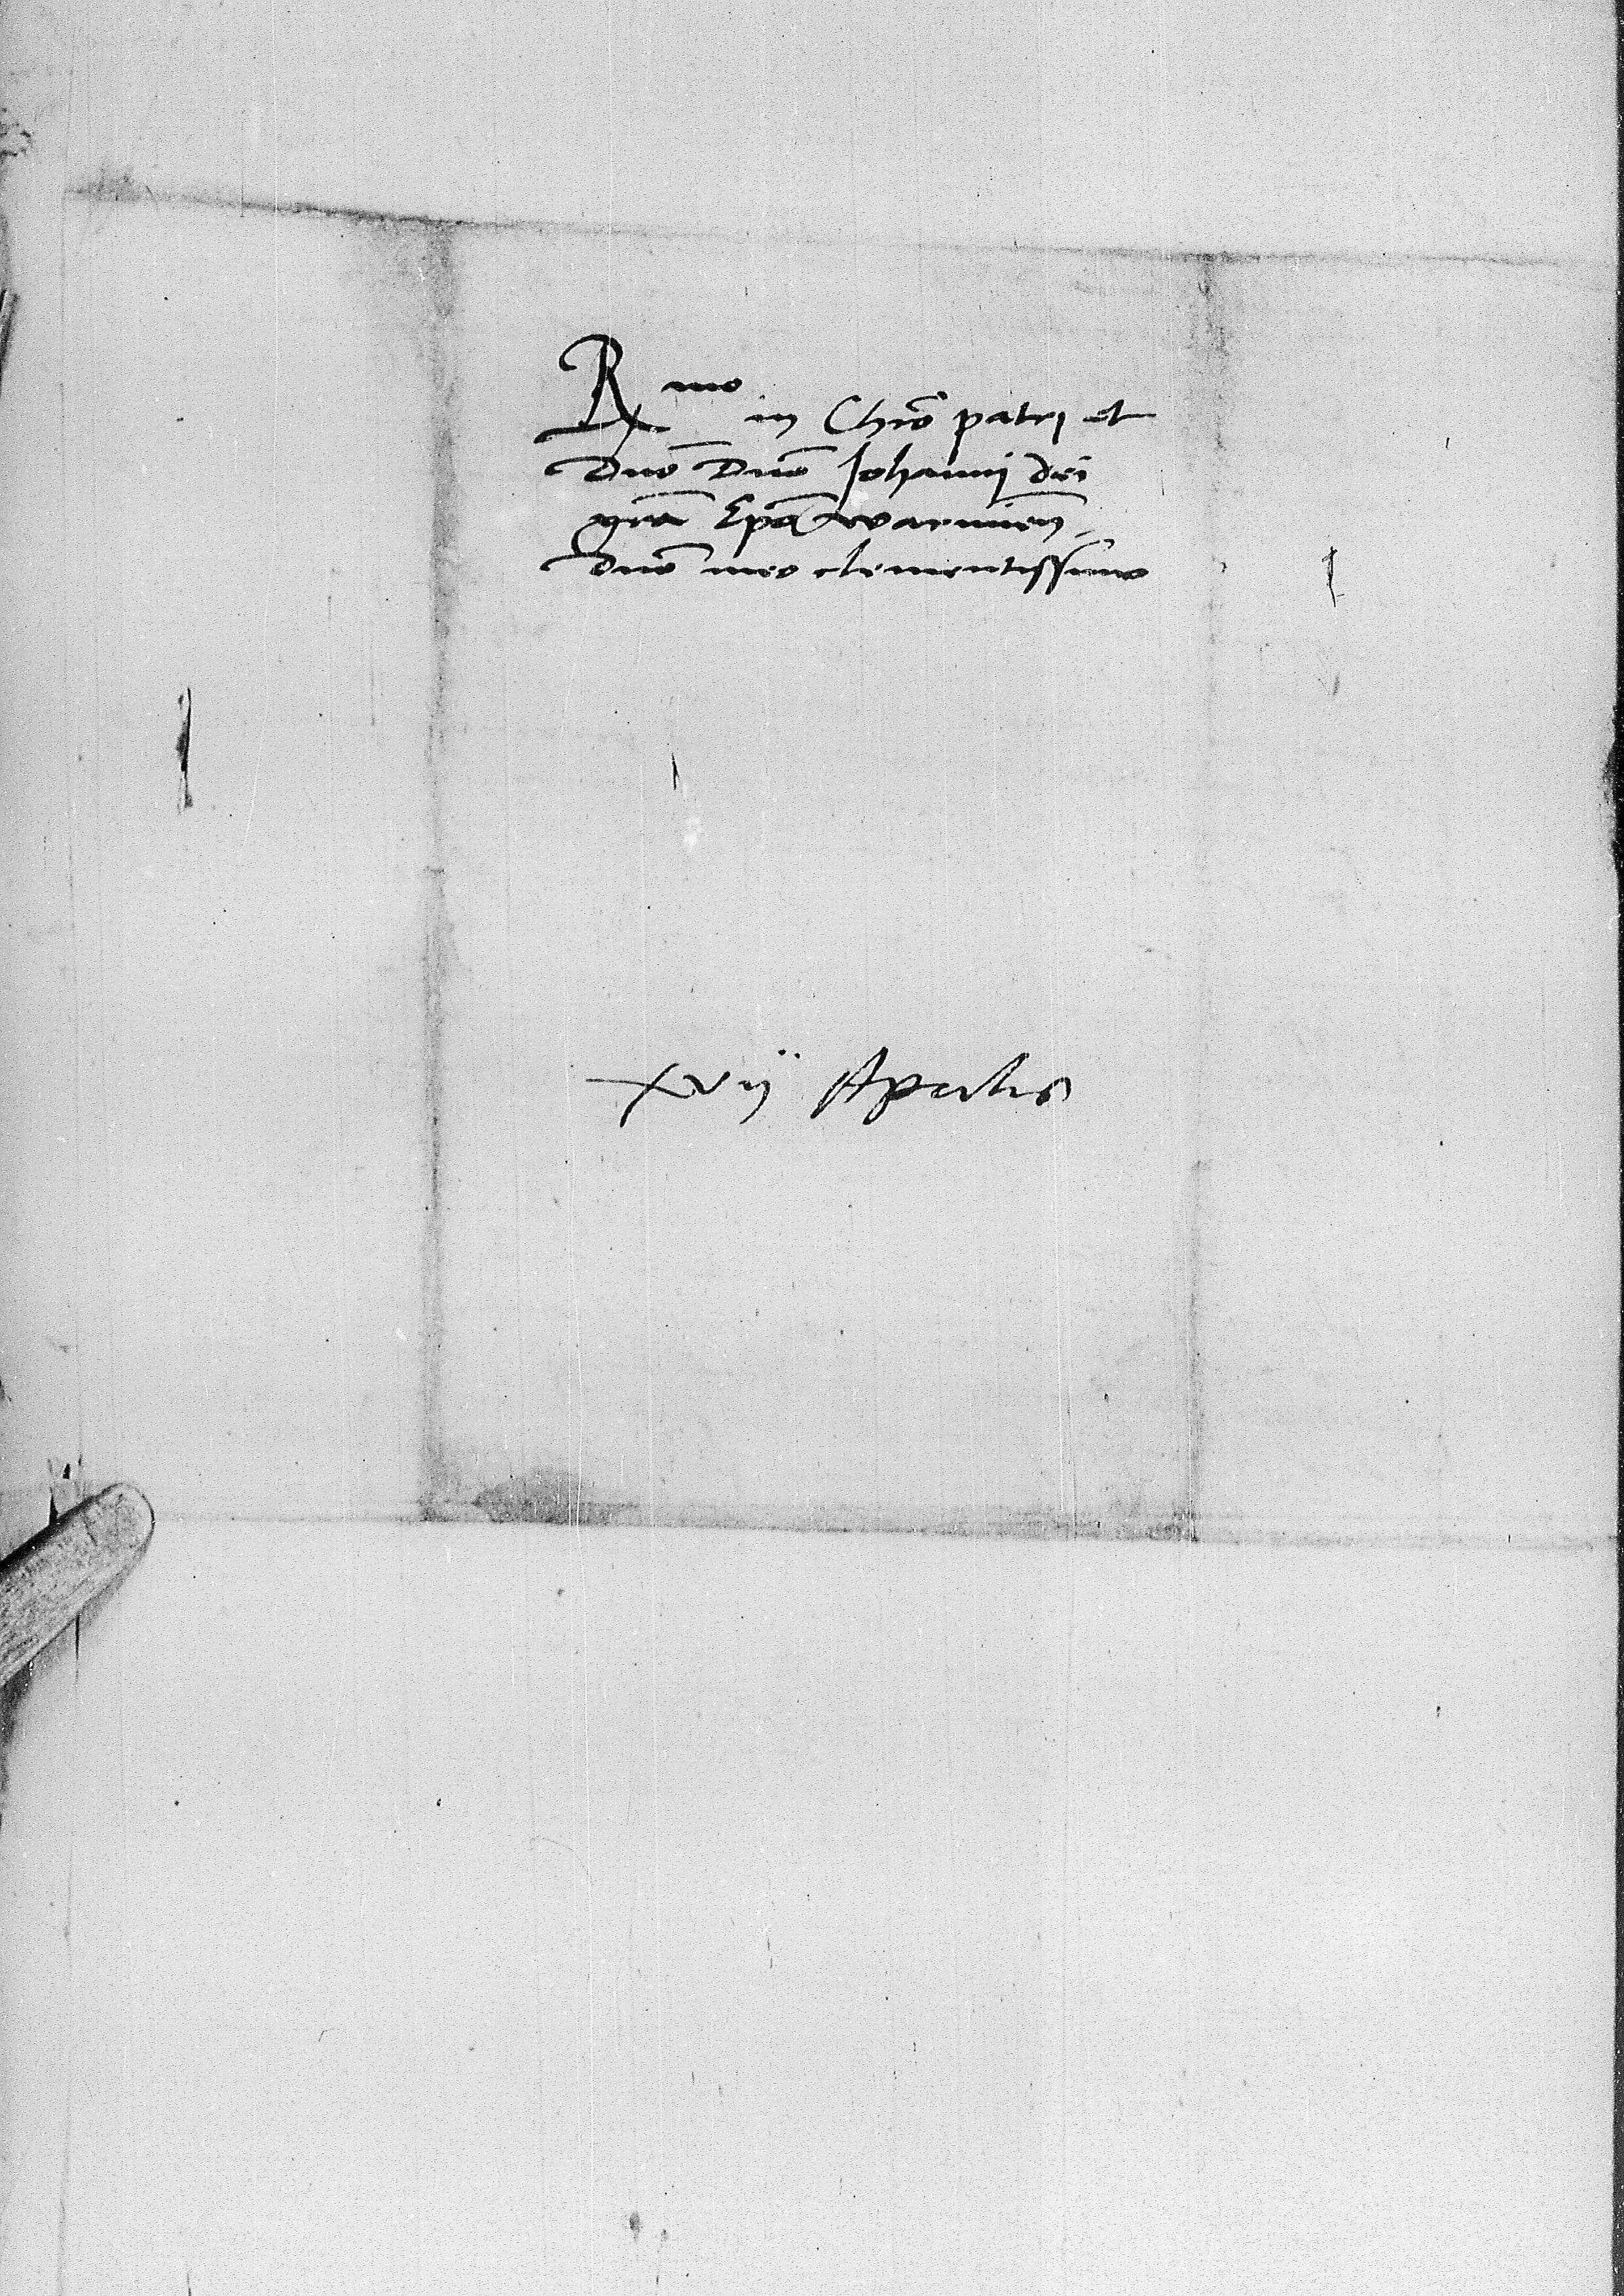 R mo
in Chr̄o patri et
Dn̄o Dn̄o Johanni dei
gr̄a Ep̄o warmien̄
dn̄o meo clementissimo
xvij Aprilis